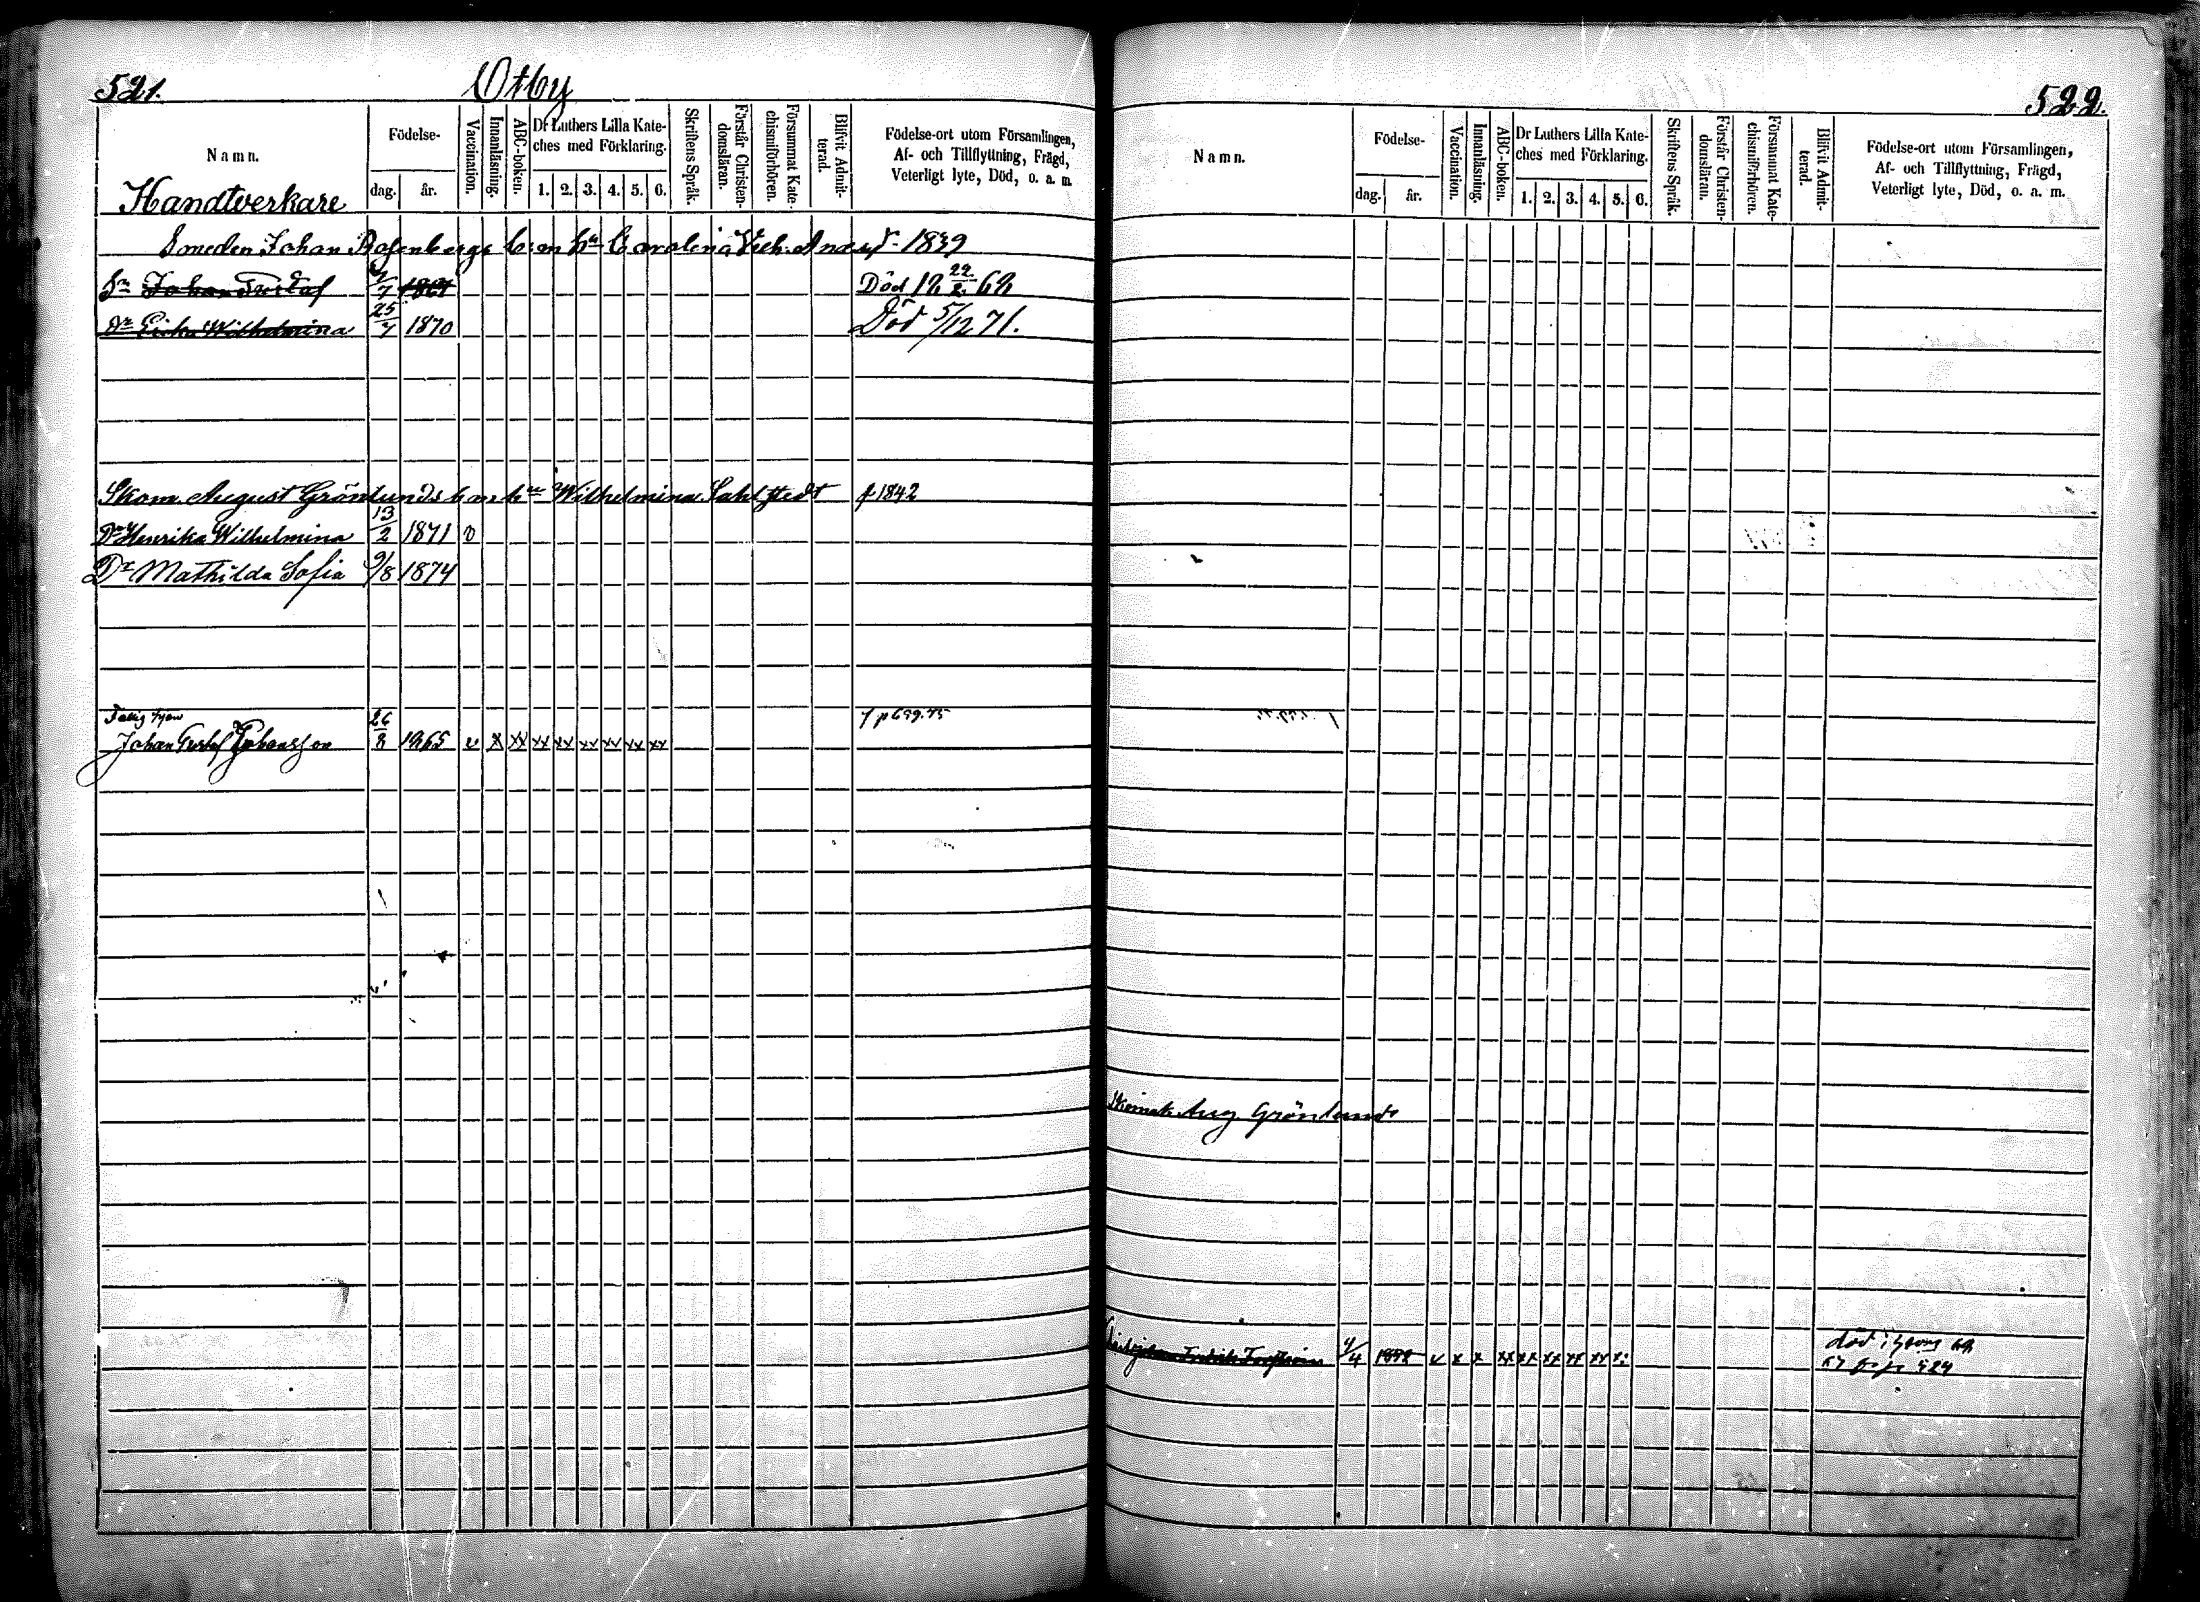 521.
Otby
Namn.
Födelse-
dag.
år.
Vaccination.
Innanläsning.
ABC-boken.
Dr Luthers Lilla Kate-
ches med Förklaring.
1. 2. 3. 4. 5. 6.
Skriftens Språk.
Förstår Christen-
domsläran.
Försummat Kate-
chismiförhören.
Blifvit Admit-
terad.
Födelse-ort utom Församlingen,
Af- och Tillflyttning, Frägd,
Veterligt lyte, Död, o. a. m.
Handtverkare
Smeden Johan Rosenbergs b. m. h. Carolina 1839
Sn Johan Gustaf 7 Död 18 22/2 68
Dr Erika Wilhelmina 25/7 1870 Död 5/12 71.
Skom. August Grönlunds b. m. h. Wilhelmina Sahlstedt f 1842
Dr Henrika Wilhelmina 13/2 1871 v
Dr Mathilda Sofia 9/8 1874
Johan Gustaf Johansson 26/8 1865 v x xx xx xx xx xx xx xx
f p 699. 75
522.
Namn.
Födelse-
dag.
år.
Vaccination.
Innanläsning.
ABC-boken.
Dr Luthers Lilla Kate-
ches med Förklaring.
1. 2. 3. 4. 5. 6.
Skriftens Språk.
Förstår Christen-
domsläran.
Försummat Kate-
chismiförhören.
Blifvit Admit-
terad.
Födelse-ort utom Församlingen,
Af- och Tillflyttning, Frägd,
Veterligt lyte, Död, o. a. m.
Skomak. Aug. Grönlunds
4/4 v x x xx xx xx xx xx
död i
524